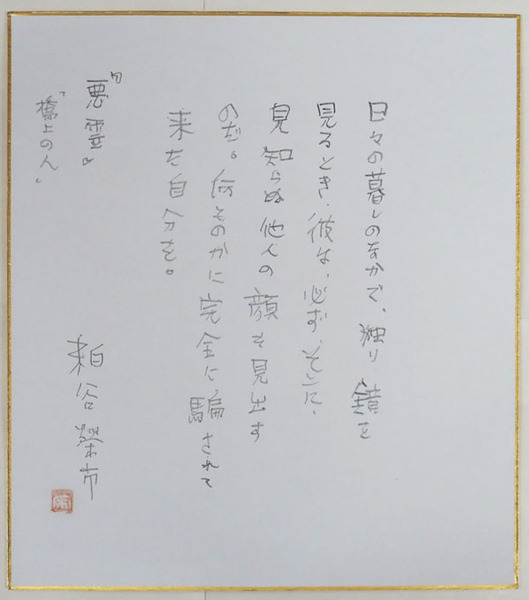 日々の暮しのなかで、独り鏡を
見るとき、彼は、必ず、そこに、
見知らぬ他人の顔を見出す
のだ。何ものかに完全に騙されて
来た自分を。
『悪霊』
「橋上の人」
粕谷栄市